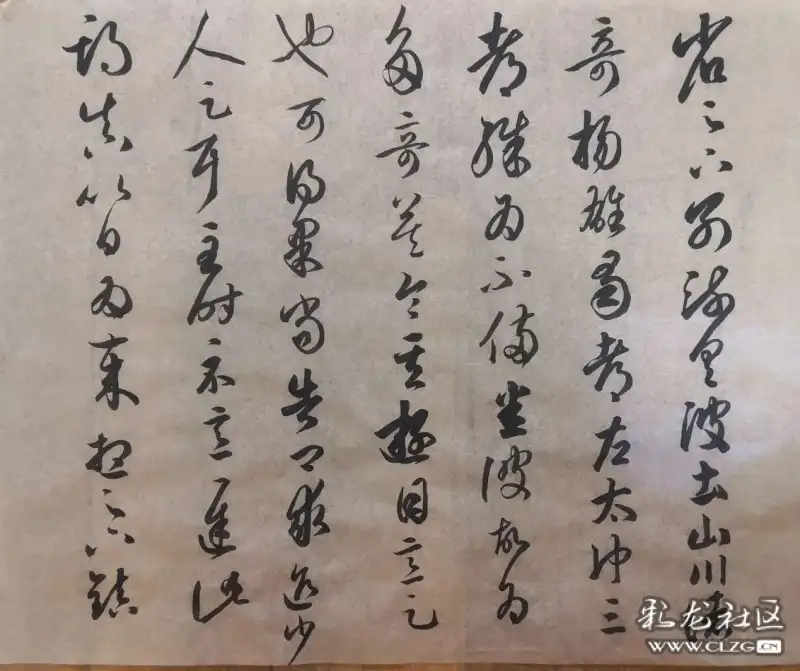 省足下別疏具彼土山川諸
奇楊雄蜀都左太沖三
都殊為不備悉彼故為
多奇益令其遊目意足
也可得果當告卿求迎少
人足耳至時示意遲此
期真以日為歲想足下鎮
彩龙社区
WWW.CLZG.CN